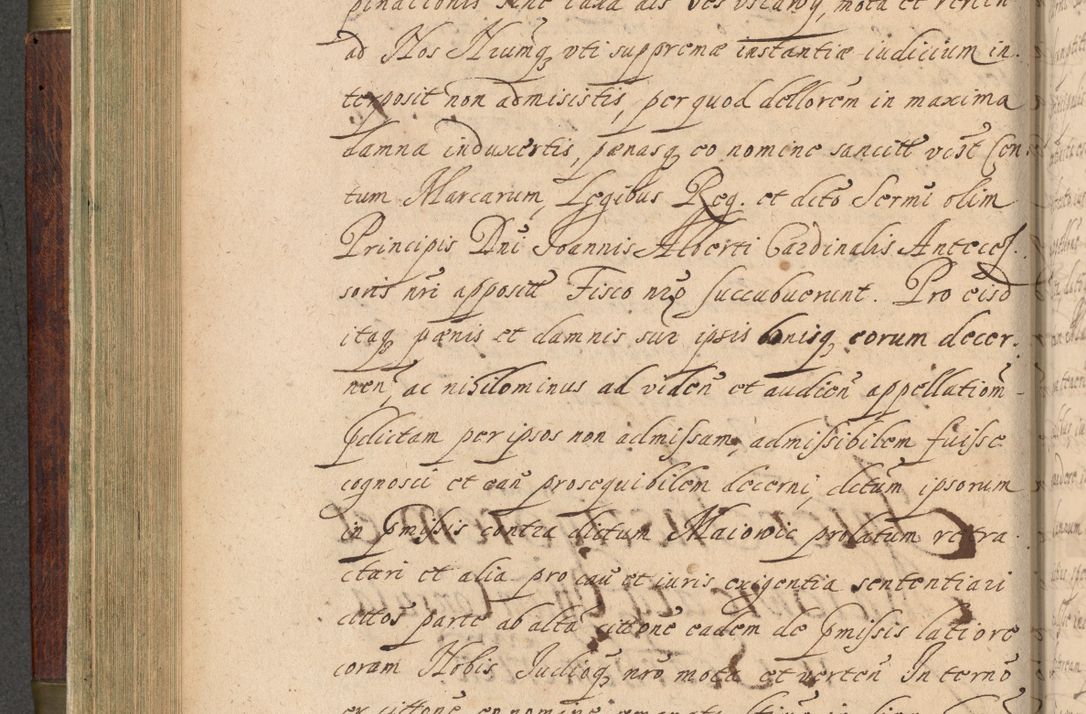 ad Nos Nrumq, vti suppremæ instantiæ iudicium in.
terposit non admisistis, per quod dellorem in maxima
damna induxertis, pænasq eo nomine sancitt Cen
tum Marcarum, Legibus Reg. et dcto Sermi olim
Principis Dni Joannis Alberti Cardinalis Anteces.
soris nri apposit Fisco nro succubuerunt. Pro eisd
itaq pænis et damnis sur ipsis bonisq eorum decer.
nen, ac nihilominus ad viden et audien appellationm
pdictam per ipsos non admissam, admissibilem fuisse
cognosci et prosequibilem decerni, dctum ipsorum
in pmissis contra dictum Maiowic prolatum retra
ctari et alia pro et iuris exigentia sententiari
parte ab alta cittone eadem de pmissis latiore
coram Nobis Judicioq nro mota et verten In termo